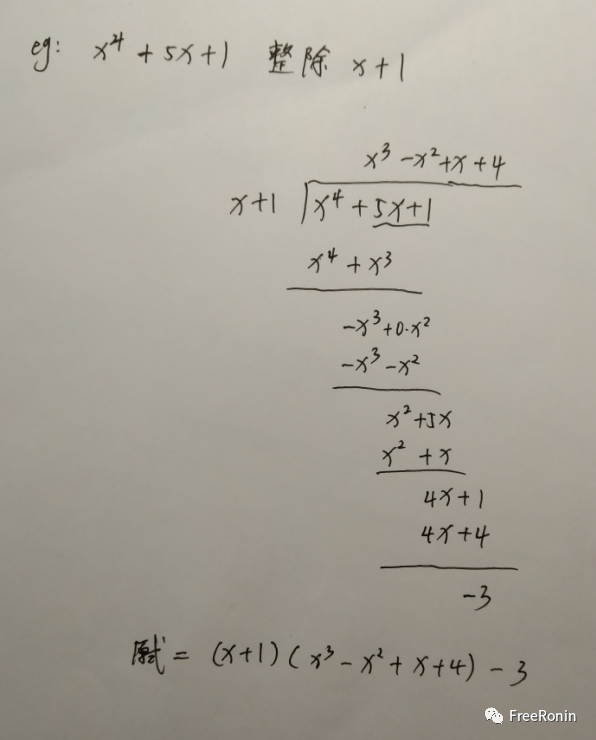 eg: x⁴ + 5x+1 整除 x+1
x³ -x²+x +4
x+1 x⁴ + 5x+1
x⁴ + x³
-x³+0·x²
-x³-x²
x²+5x
x² +x
4x+1
4x+4
-3
原式 = (x+1) (x³ - x² + x+4) - 3
FreeRonin